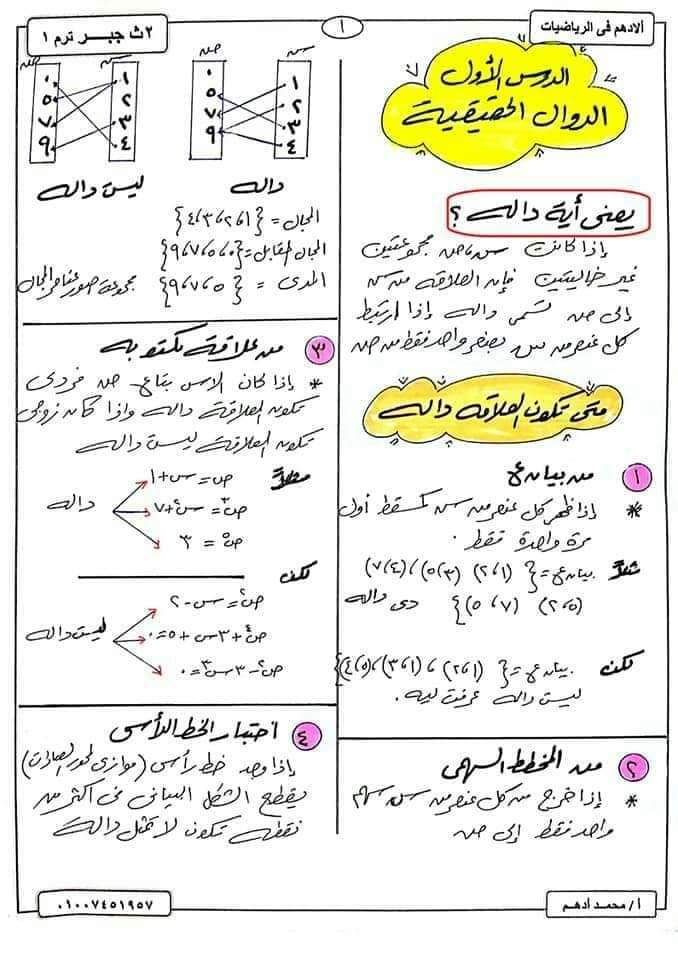 الادهم فى الرياضيات
١
٢ث جبر ترم ١
الدرس الأول
الدوال الحقيقية
يعنى أية داله ؟
إذا كانت س ، ص مجموعتين
غير خاليتين فإن العلاقه من س
إلى ص تسمى داله إذا ارتبط
كل عنصر من س بعنصر واحد فقط من ص
متى تكون العلاقه داله
١ من بيان ع
* إذا ظهر كل عنصر من س كمسقط أول
مرة واحدة فقط .
مثلاً بيان ع = { (١،٢) (٣،٥) ، (٤،٧)
(٥،٢) (٧،٥) } دى داله
لكن بيان ع = { (١،٢) ، (١،٣) ، (٥،٤) }
ليست داله عرفت ليه .
٢ من المخطط السهمى
* إذا خرج من كل عنصر من س سهم
واحد فقط إلى ص
س ص
١ ٢ ٣ ٤
٠ ٥ ٧ ٩
داله
س ص
١ ٢ ٣ ٤
٠ ٥ ٧ ٩
ليست داله
المجال = { ١،٢،٣،٤ }
المجال المقابل = { ٠،٥،٧،٩ }
المدى = { ٥،٧،٩ } مجموعة صور عناصر المجال
٣ من علاقة مكتوبه
* إذا كان الاس بتاع ص فردى
تكون العلاقة داله واذا كان زوجى
تكون العلاقة ليست داله
مثلاً ص = س + ١
ص٣ = س٢ + ٧ داله
ص٥ = ٣
لكن ص٢ = س - ٢
ص٤ + ٣س + ٥ = ٠ ليست داله
ص٢ - ٣س٣ = ٠
٤ اختبار الخط الرأسى
إذا وجد خط رأسى (موازى لمحور الصادات)
يقطع الشكل البيانى فى اكثر من
نقطه تكون لا تمثل داله
أ/ محمد ادهم
٠١٠٠٧٤٥١٩٥٧